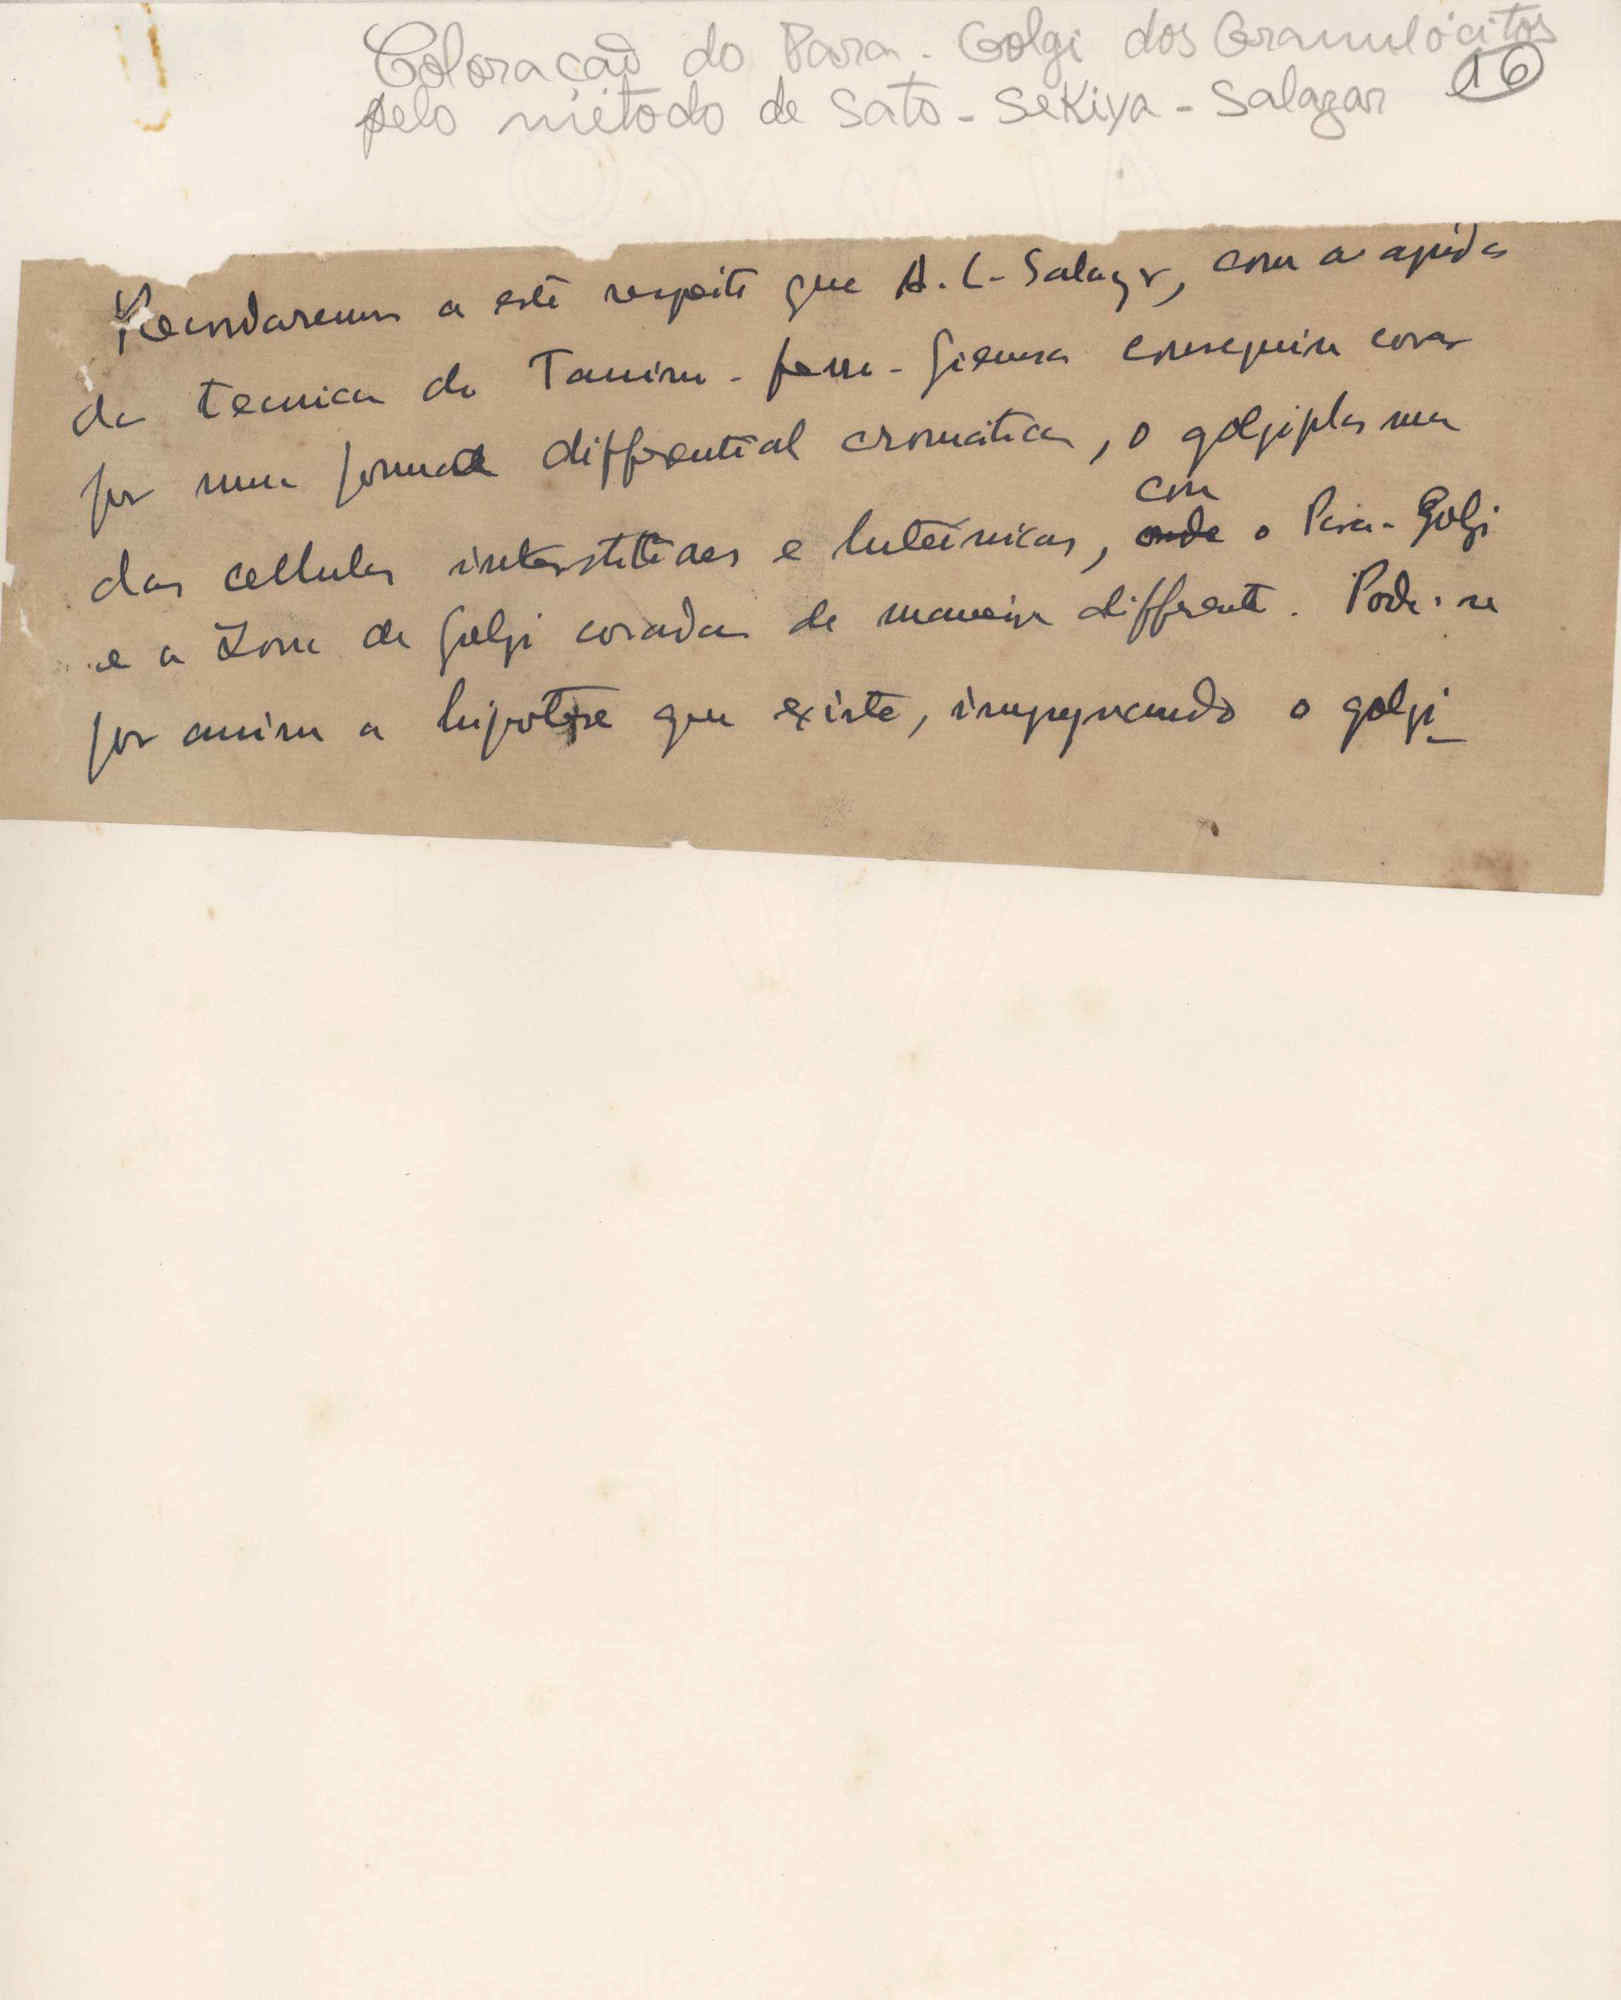 Coloração do Para-Golgi dos Granulócitos
pelo método de Sato-Sekiya-Salazar 16
Recordaremos a este respeito que A. L. Salazar, com a ajuda
da tecnica do Tanino-ferro-Giemsa conseguiu corar
por uma forma differential cromatica, o golgiplasma
das cellulas intersticiaes e luteinicas, com
onde o Para-Golgi
e a Zona de Golgi coradas de maneira differente. Pode-se
por assim a hipotese que existe, impregnando o golgi-